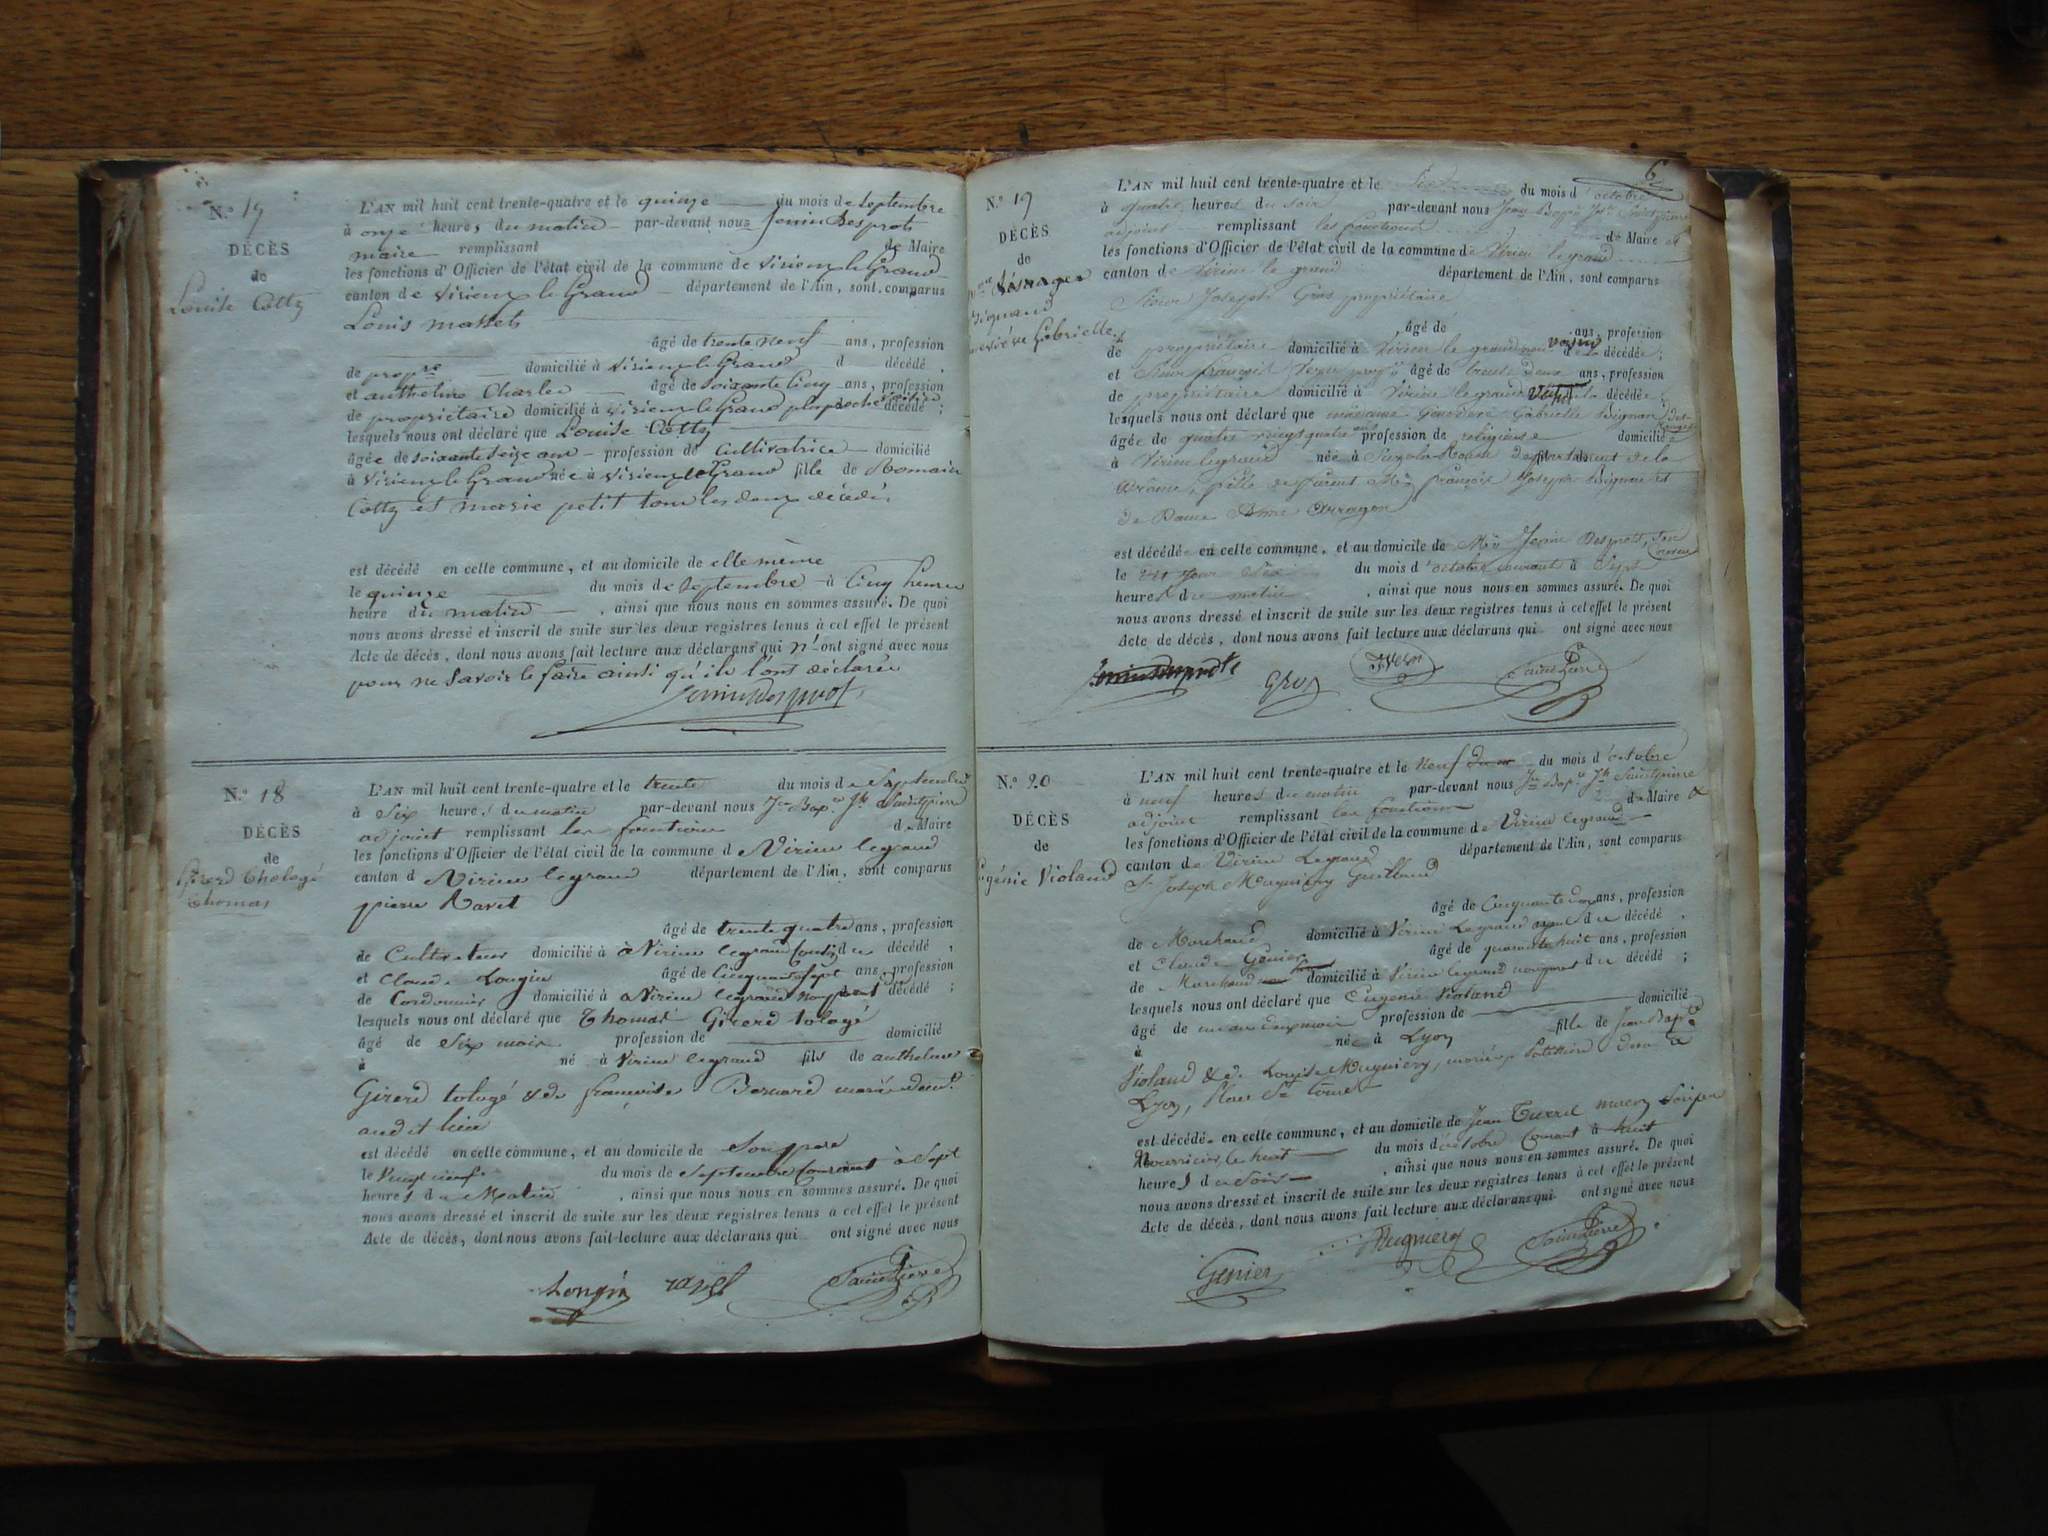 N.° 19
DÉCÈS
de
Louise Cotty
L'AN mil huit cent trente-quatre et le quinze du mois de septembre
à onze heures du matin par-devant nous Jenin Desprots
maire remplissant de Maire
les fonctions d'Officier de l'état civil de la commune de Virieu le Grand
canton de Virieu le Grand département de l'Ain, sont comparus
Louis
âgé de trente neuf ans, profession
de propre domicilié à Virieu le Grand d décédé,
et anthelme Charles âgé de soixante cinq ans, profession
de propriétaire domicilié à Virieu le Grand plus proche décédé;
lesquels nous ont déclaré que Louise Cotty
âgée de soixante seize ans profession de Cultivatrice domicilié
à Virieu le Grand née à Virieu le Grand fille de Romain
Cotty et marie petit tous les deux décédés
est décédé en cette commune, et au domicile de elle même
le quinze du mois de septembre à Cinq heures
heure du matin, ainsi que nous nous en sommes assuré. De quoi
nous avons dressé et inscrit de suite sur les deux registres tenus à cet effet le présent
Acte de décès, dont nous avons fait lecture aux déclarans qui n'ont signé avec nous
pour ne savoir le faire ainsi qu'ils l'ont déclaré
Jenin Desprots
N.° 18
DÉCÈS
de
Girerd Thologé
Thomas
L'AN mil huit cent trente-quatre et le trente du mois de Septembre
à Six heures du matin par-devant nous Jn Bapte Jh Saintpierre
adjoint remplissant les fonctions de Maire
les fonctions d'Officier de l'état civil de la commune d Virieu legrand
canton d Virieu legrand département de l'Ain, sont comparus
pierre Ravet
âgé de trente quatre ans, profession
de Cultivateur domicilié à à Virieu legrand cousin du décédé,
et Claude Longin âgé de Cinquante sept ans, profession
de Cordonnier domicilié à à Virieu legrand non parent décédé;
lesquels nous ont déclaré que Thomas Girerd tologé
âgé de Six mois profession de domicilié
à né à Virieu legrand fils de anthelme
Girerd tologé & de françoise Bernard mariés
audit lieu
est décédé en cette commune, et au domicile de Son père
le Vingt neuf du mois de Septembre Courant à Sept
heures du Matin, ainsi que nous nous en sommes assuré. De quoi
nous avons dressé et inscrit de suite sur les deux registres tenus à cet effet le présent
Acte de décès, dont nous avons fait lecture aux déclarans qui ont signé avec nous
Longin ravet SaintPierre
6
N.° 19
DÉCÈS
de
Brignand
Gabrielle
L'AN mil huit cent trente-quatre et le du mois d'octobre
à quatre heures du soir par-devant nous Jean Bapte Jh Saintpierre
adjoint remplissant les fonctions de Maire
les fonctions d'Officier de l'état civil de la commune de Virieu legrand
canton de Virieu le grand département de l'Ain, sont comparus
Sieur Joseph Gros propriétaire
âgé de ans, profession
de propriétaire domicilié à Virieu le grand voisin de la décédée;
et Sieur françois âgé de trente deux ans, profession
de propriétaire domicilié à Virieu legrand de la décédée;
lesquels nous ont déclaré que madame Genevieve Gabrielle Brignand
âgée de quatre vingt quatre ans profession de religieuse domiciliée
à Virieu legrand née à département de la
Drôme, fille de françois Joseph Brignand et
de Dame Arragon
est décédée en cette commune, et au domicile de Mr Jenin Desprots, son neveu
le du mois d'octobre courant à Sept
heures du matin, ainsi que nous nous en sommes assuré. De quoi
nous avons dressé et inscrit de suite sur les deux registres tenus à cet effet le présent
Acte de décès, dont nous avons fait lecture aux déclarans qui ont signé avec nous
Gros SaintPierre
N.° 20
DÉCÈS
de
Eugénie Violand
L'AN mil huit cent trente-quatre et le neuf du mois d'octobre
à neuf heures du matin par-devant nous Jn Bapte Jh Saintpierre
adjoint remplissant les fonctions de Maire
les fonctions d'Officier de l'état civil de la commune de Virieu legrand
canton de Virieu Legrand département de l'Ain, sont comparus
Sr Joseph Mugniery
âgé de Cinquante ans, profession
de Marchand domicilié à Virieu Legrand ayeul du décédé,
et Claude Genier âgé de quarante huit ans, profession
de Marchand domicilié à Virieu legrand non parent du décédé;
lesquels nous ont déclaré que Eugénie Violand
âgé de un an profession de domicilié
à née à Lyon fille de Jean Bapte
Violand & de Louise Mugniery, mariés, à
Lyon, Place
est décédée en cette commune, et au domicile de Jean maçon Son père
Nourricier, le huit du mois d'octobre Courant à huit
heures du Soir, ainsi que nous nous en sommes assuré. De quoi
nous avons dressé et inscrit de suite sur les deux registres tenus à cet effet le présent
Acte de décès, dont nous avons fait lecture aux déclarans qui ont signé avec nous
Genier Mugniery SaintPierre